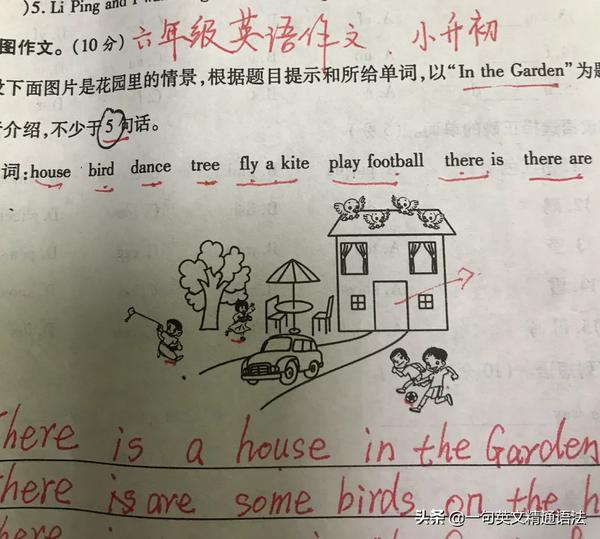 )5. Li Ping and I
图作文。(10分) 六年级英语作文 小升初
下面图片是花园里的情景,根据题目提示和所给单词,以“In the Garden”为题
介绍,不少于5句话。
词:house bird dance tree fly a kite play football there is there are
There is a house in the Garden
There is are some birds on the h
头条 @一句英文精通语法